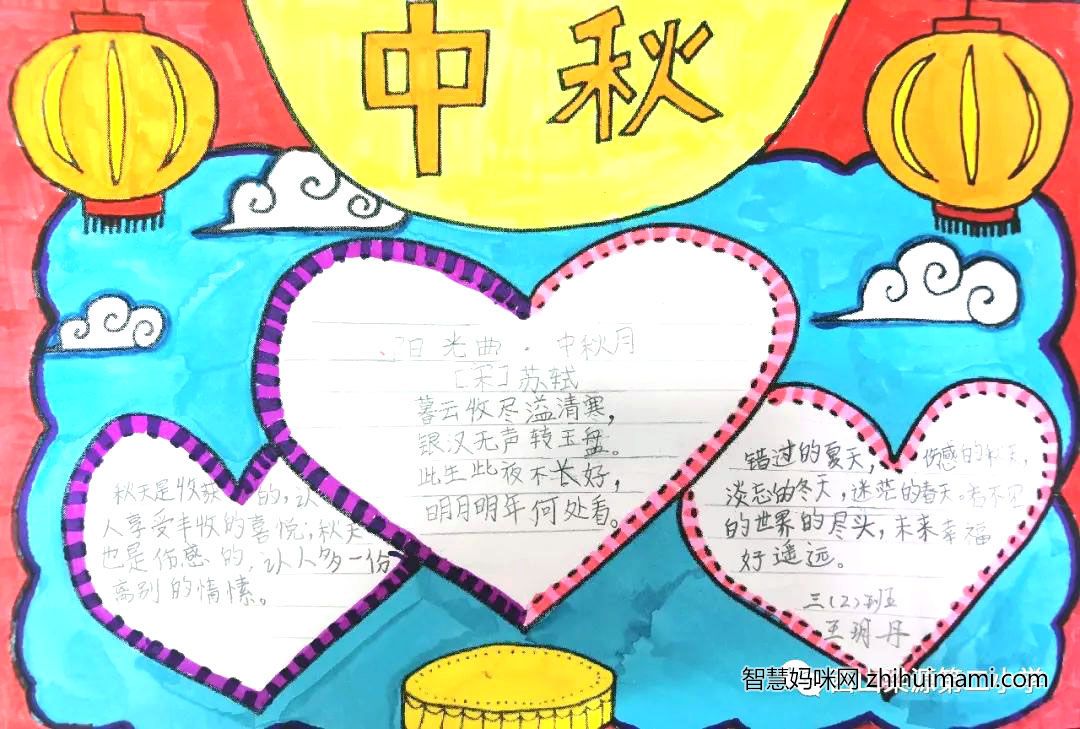 中秋
阳光曲·中秋月
[宋]苏轼
暮云收尽溢清寒，
银汉无声转玉盘。
此生此夜不长好，
明月明年何处看。
秋天是收获的，让
人享受丰收的喜悦；秋天
也是伤感的，让人多一份
离别的情愫。
错过的夏天，伤感的秋天，
淡忘的冬天，迷茫的春天。看不见
的世界的尽头，未来幸福
好遥远。
三(2)班
王玥丹
智慧妈咪网 zhihuimami.com